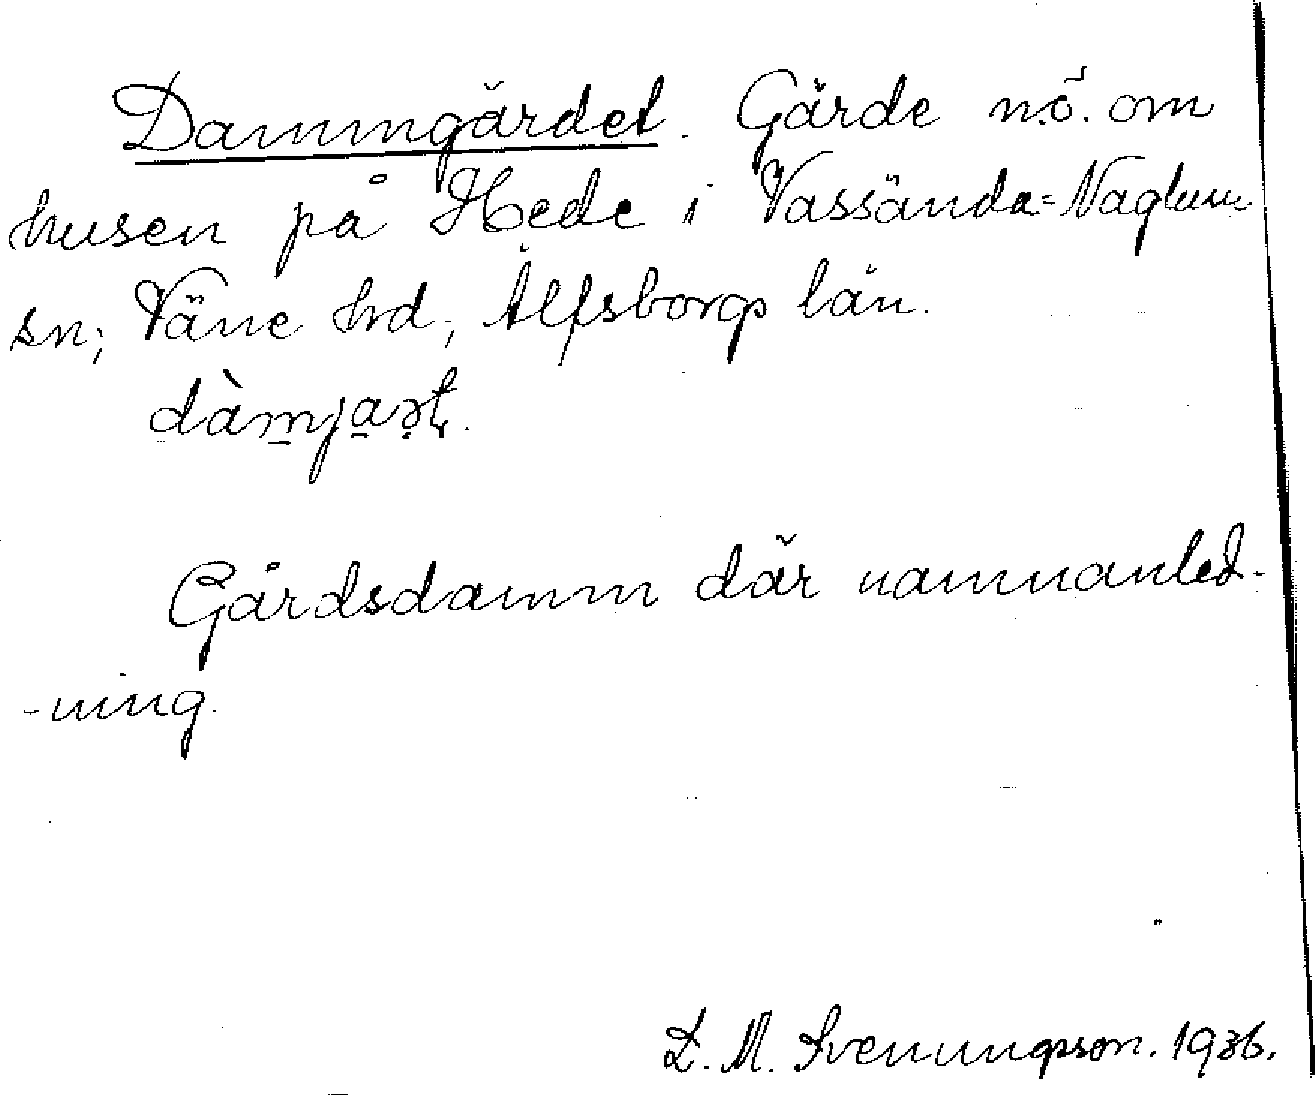 Dammgärdet. Gärde nö. om
husen på Hede i Vassända=Naglum
sn; Väne hrd, Älfsborgs län.
dàmja
Gårdsdamm där namnanled-
-ning.
D. M. Svenungsson. 1936.